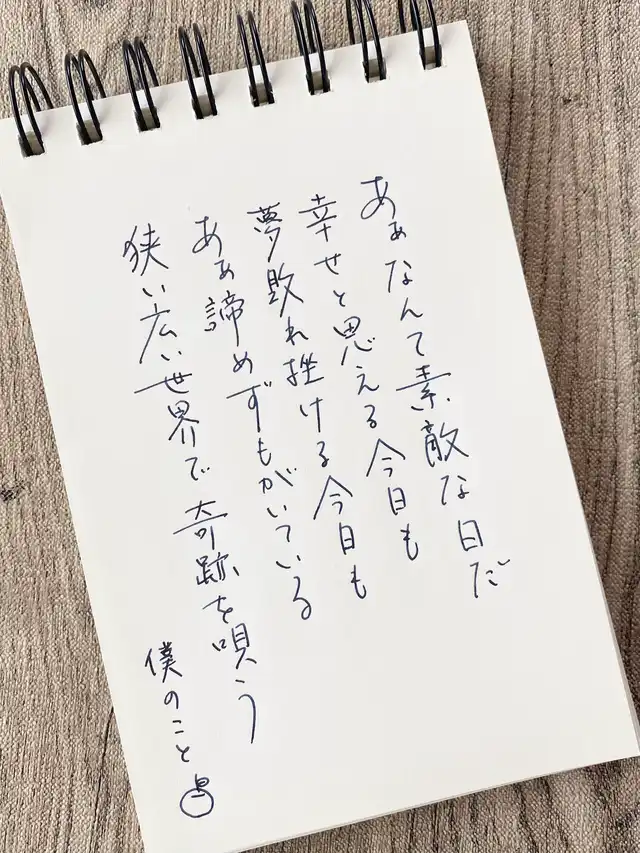 ああなんて素敵な日だ
幸せと思える今日も
夢敗れ挫ける今日も
ああ諦めずもがいている
狭い広い世界で奇跡を唄う
僕のこと